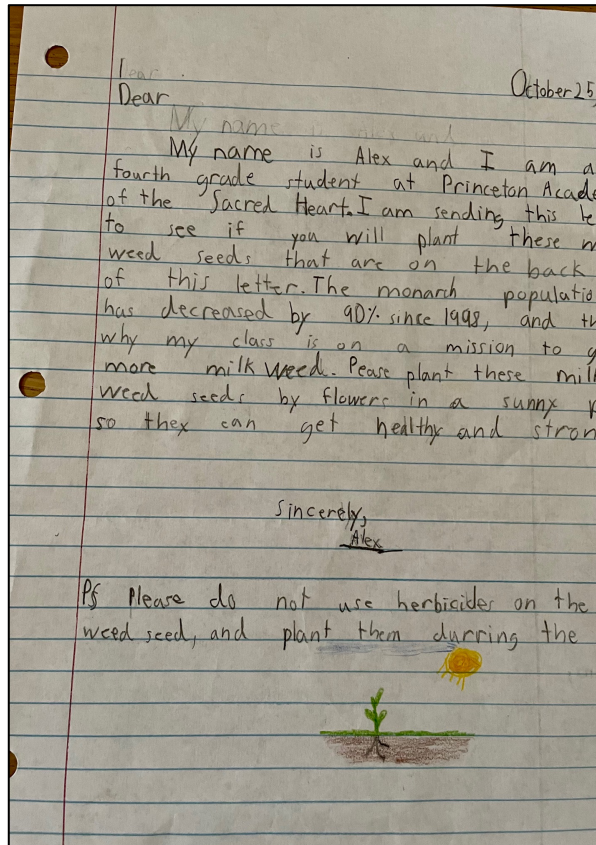 Dear
October 25,
Dear
My name is Alex and
My name is Alex and I am a
fourth grade student at Princeton Acade
of the Sacred Heart. I am sending this le
to see if you will plant these m
weed seeds that are on the back
of this letter. The monarch populatio
has decreased by 90% since 1998, and th
why my class is on a mission to g
more milkweed. Pease plant these milk
weed seeds by flowers in a sunny p
so they can get healthy and stron
Sincerely,
Alex
PS Please do not use herbicides on the
weed seed, and plant them durring the